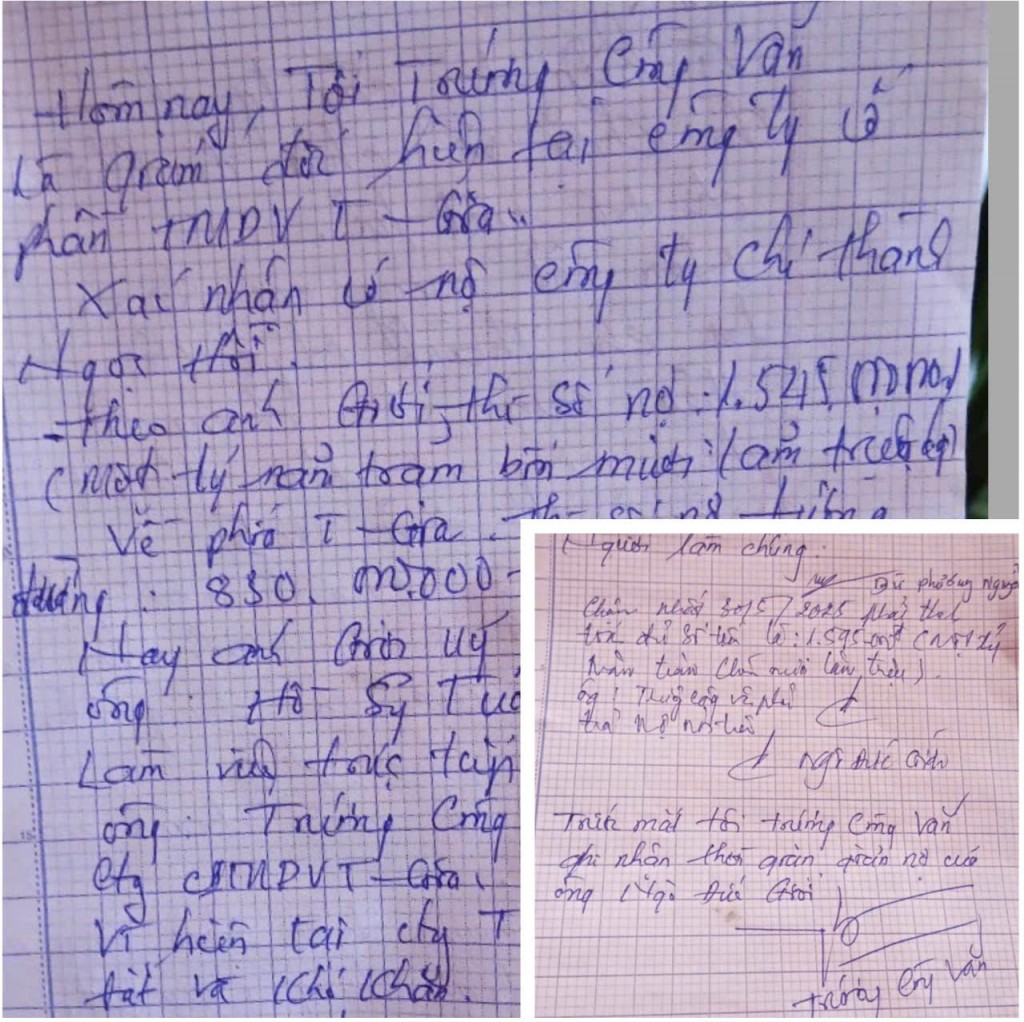 Hôm nay, Tôi Trương Công Văn
Là giám đốc hiện tại công ty cổ
phần TMDV T-Gia.
Xác nhận có nợ công ty Chí Thành
Ngọc Hồi.
- theo anh Giới, thì số nợ: 1.545.
(Một tỷ năm trăm bốn mươi lăm triệu
Về phía T-Gia. thì số nợ
: 830.000.000-
Nay anh Giới uỷ
ông Hồ Sỹ
Làm việc trực tiếp
ông: Trương Công
cty CPTMDV T-Gia.
Vì hiện tại cty T
tất và khó khăn.
Người làm chứng:
phương
Chậm nhất 30/5/2025 phải
trả đủ số tiền là: 1.595
ông: Trương công văn phải
trả nợ
Ngô Đức Giới
Trước mắt tôi trương công văn
ghi nhận thời gian giãn nợ của
ông Ngô Đức Giới
Trương Công Văn